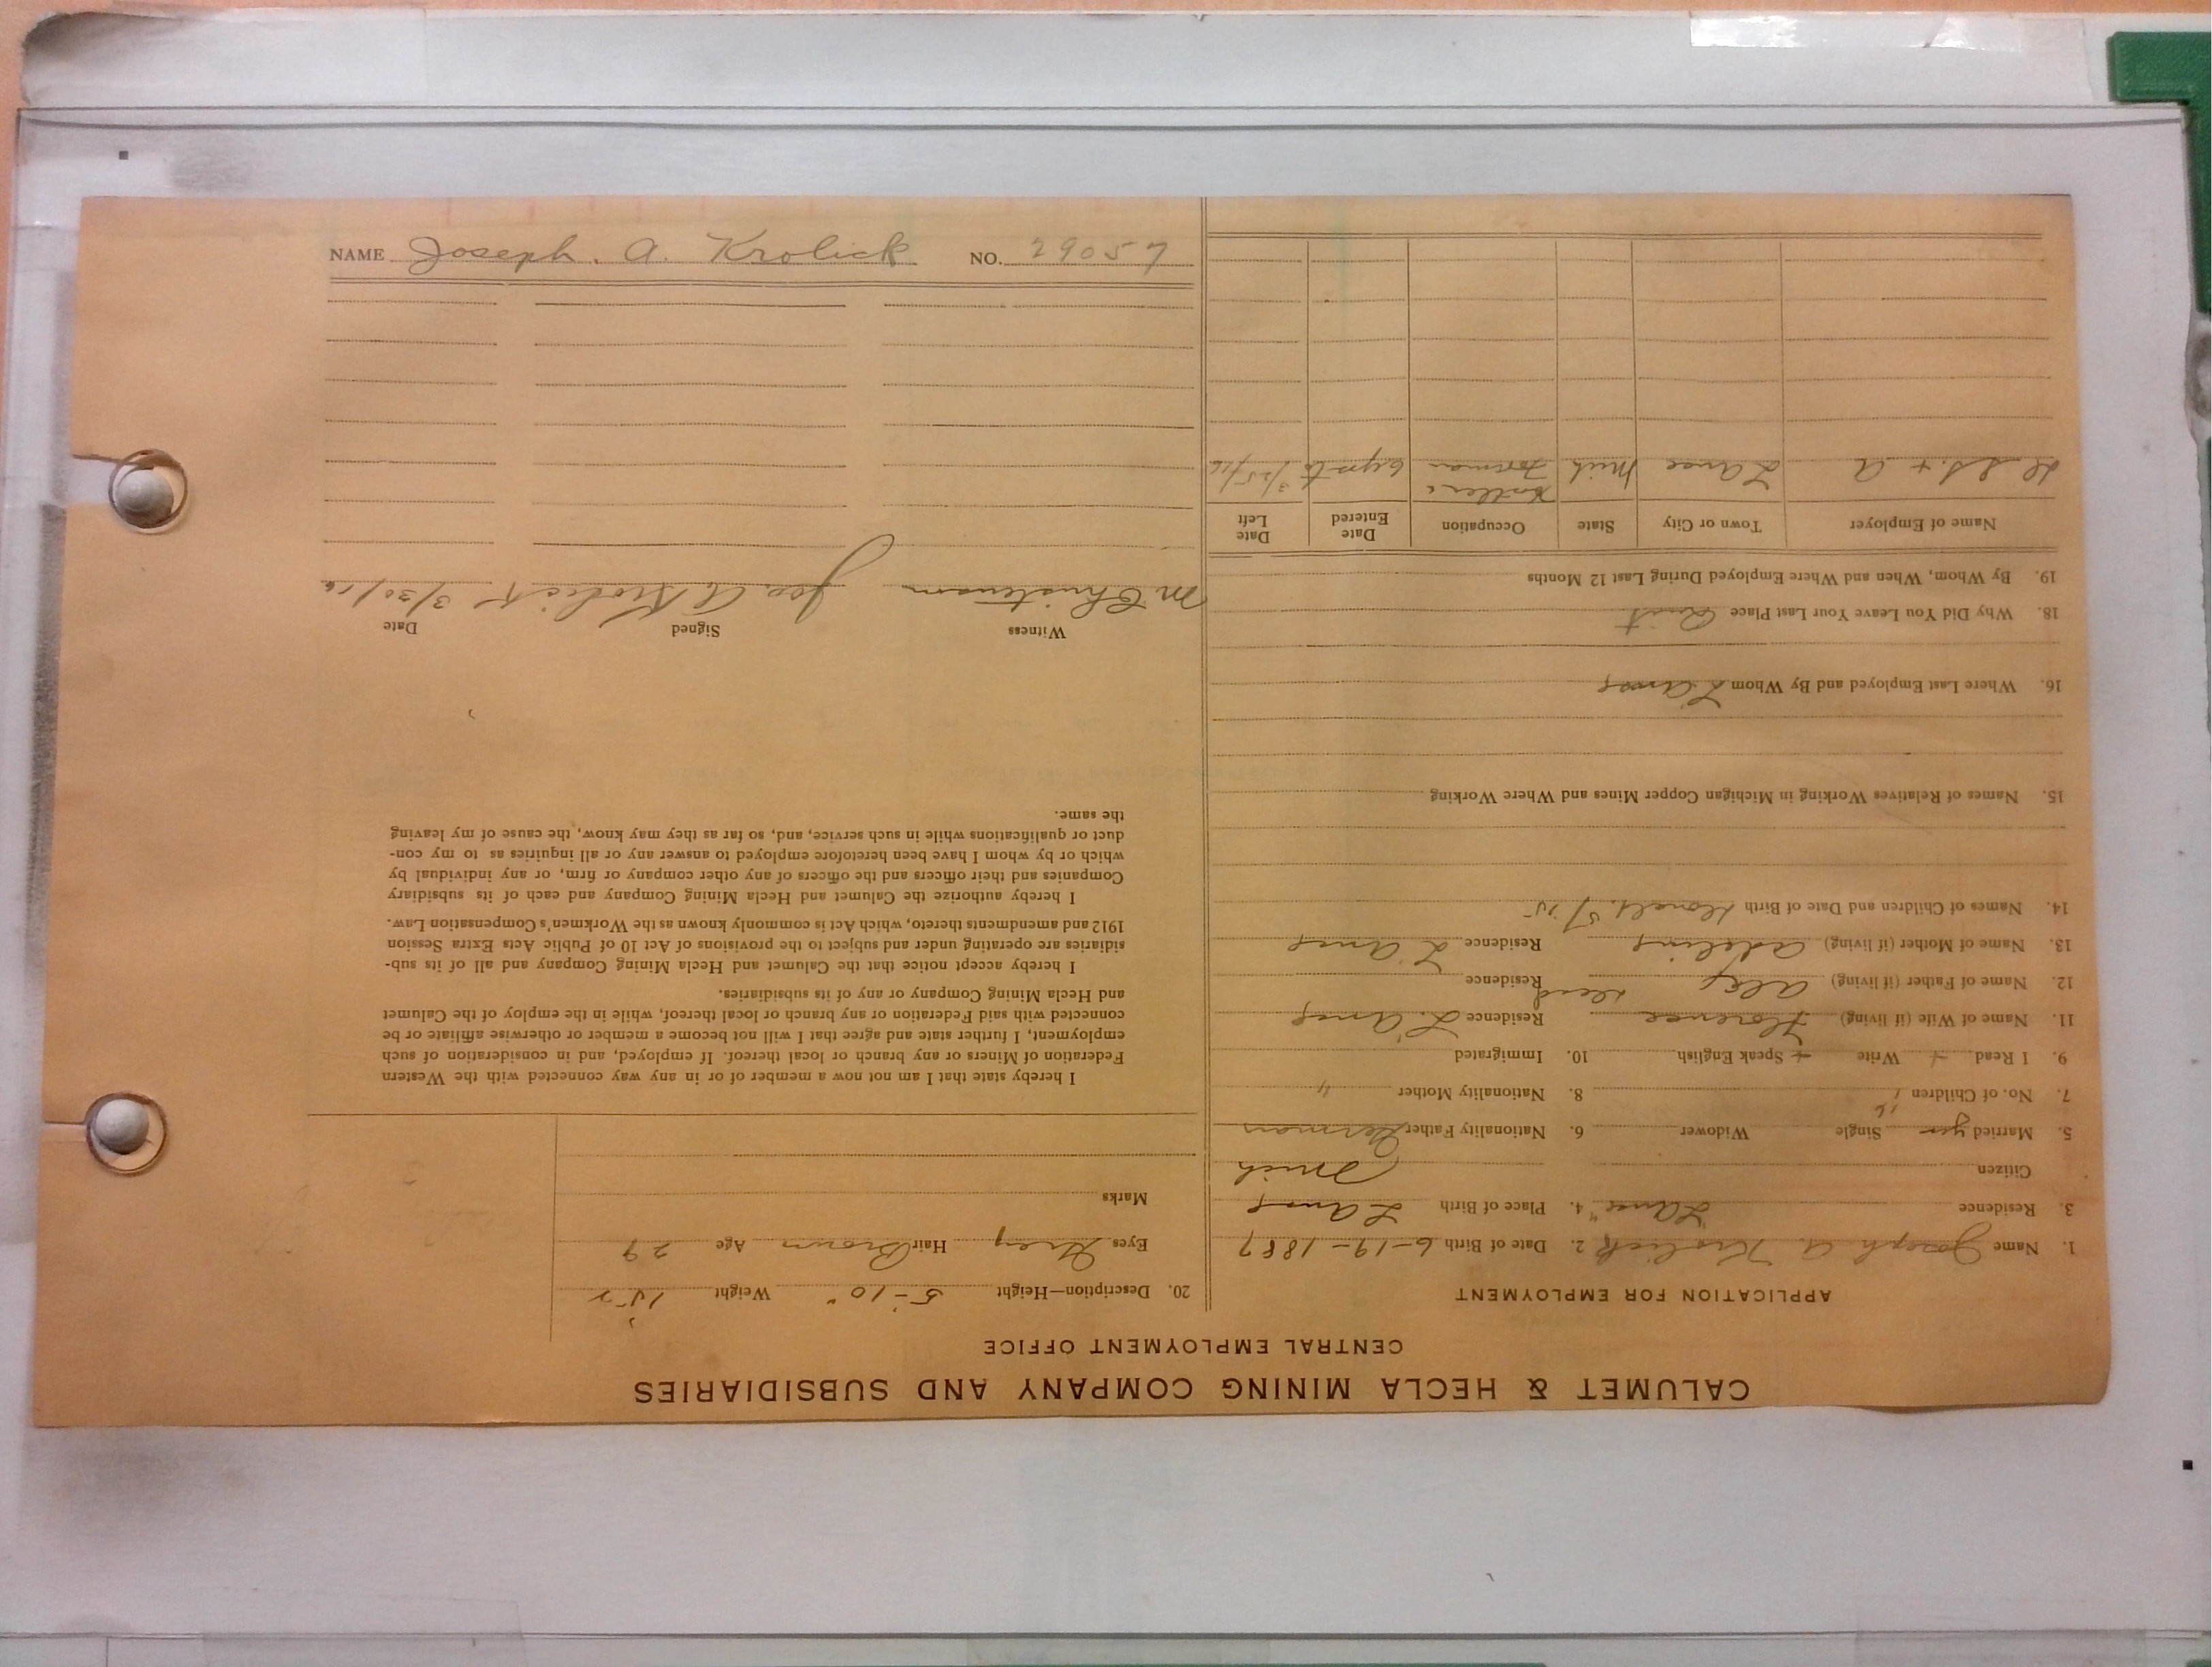 CALUMET & HECLA MINING COMPANY AND SUBSIDIARIES
CENTRAL EMPLOYMENT OFFICE
APPLICATION FOR EMPLOYMENT
1. Name Joseph A. Krolick 2. Date of Birth 6-19-1887
3. Residence L'Anse 4. Place of Birth L'Anse
Citizen Mich
5. Married yes Single Widower 6. Nationality Father German
7. No. of Children 1 8. Nationality Mother "
9. I Read + Write + Speak English 10. Immigrated
11. Name of Wife (if living) Florence Residence L'Anse
12. Name of Father (if living) Alex dead Residence
13. Name of Mother (if living) Adeline Residence L'Anse
14. Names of Children and Date of Birth Donald 5/15
15. Names of Relatives Working in Michigan Copper Mines and Where Working
16. Where Last Employed and By Whom L'Anse
18. Why Did You Leave Your Last Place Quit
19. By Whom, When and Where Employed During Last 12 Months
Name of Employer Town or City State Occupation Date Entered Date Left
D. S.S. & A L'Anse Mich Foreman 6 yrs to 3/25/16
20. Description—Height 5-10" Weight 152
Eyes Grey Hair Brown Age 29
Marks
I hereby state that I am not now a member of or in any way connected with the Western
Federation of Miners or any branch or local thereof. If employed, and in consideration of such
employment, I further state and agree that I will not become a member or otherwise affiliate or be
connected with said Federation or any branch or local thereof, while in the employ of the Calumet
and Hecla Mining Company or any of its subsidiaries.
I hereby accept notice that the Calumet and Hecla Mining Company and all of its sub-
sidiaries are operating under and subject to the provisions of Act 10 of Public Acts Extra Session
1912 and amendments thereto, which Act is commonly known as the Workmen's Compensation Law.
I hereby authorize the Calumet and Hecla Mining Company and each of its subsidiary
Companies and their officers and the officers of any other company or firm, or any individual by
which or by whom I have been heretofore employed to answer any or all inquiries as to my con-
duct or qualifications while in such service, and, so far as they may know, the cause of my leaving
the same.
Witness Signed Date
M Christenson Joe. A Krolick 3/30/16
NAME Joseph. A. Krolick NO. 29057